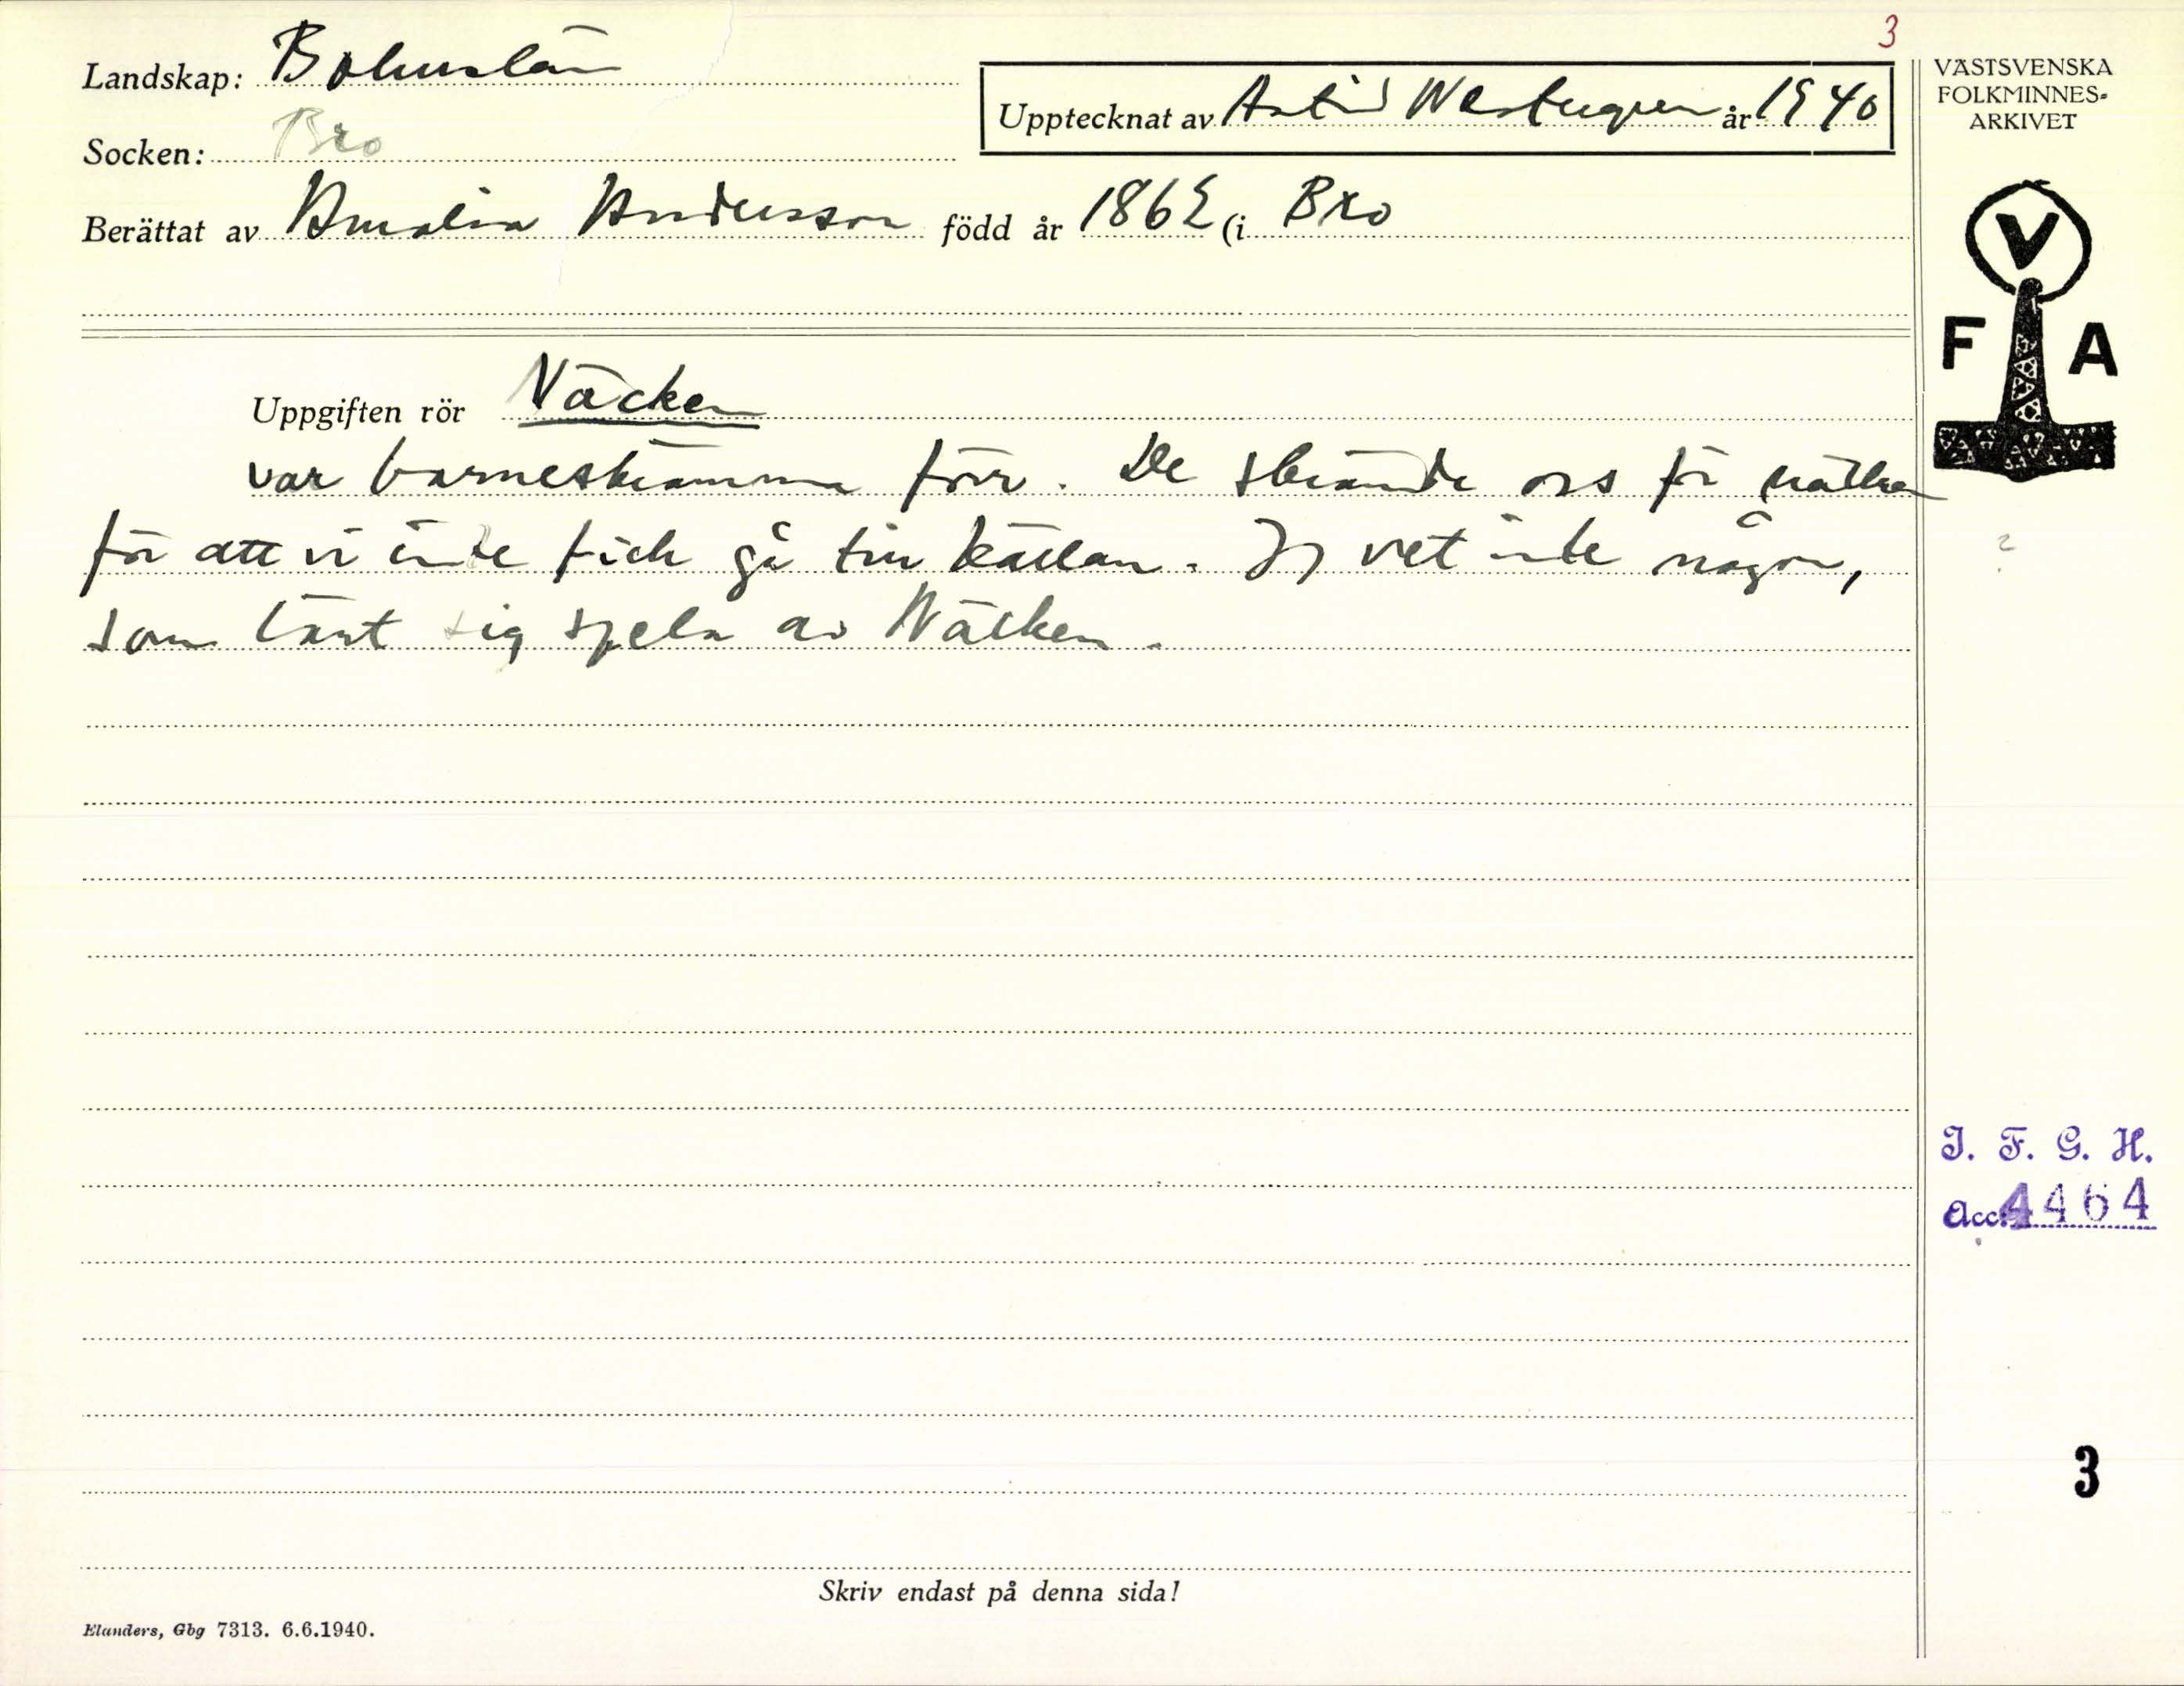 3
Landskap: Bohuslän
Upptecknat av Astrid Westergren år 1940
VÄSTSVENSKA
FOLKMINNES-
ARKIVET
Socken: Bro
Berättat av Amalia Andersson född år 1862 (i Bro
V
F A
Uppgiften rör Näcken
var barneskrämma förr. De skrämde oss för näcken
för att vi inte fick gå till källan. Jag vet inte någon,
som lärt sig spela av Näcken.
J. F. G. H.
Acc. 4464
3
Skriv endast på denna sida!
Elanders, Gbg 7313. 6.6.1940.